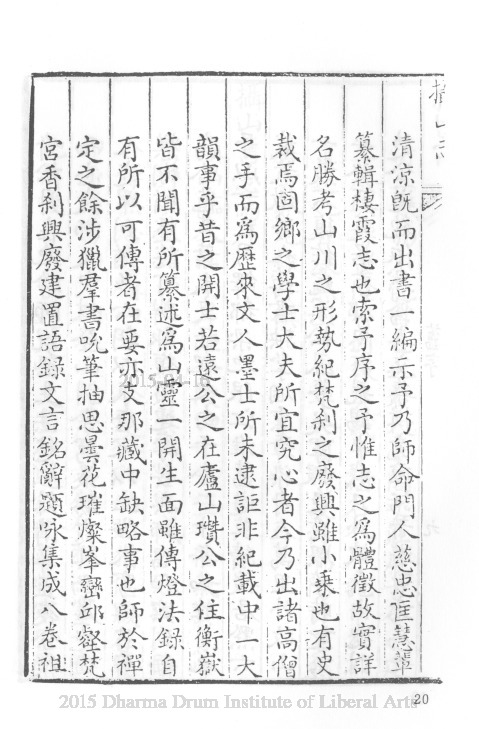 攝山志
清涼旣而出書一編示予乃師命門人慈忠匡慧輩
纂輯棲霞志也索予序之予惟志之爲體徵故實詳
名勝考山川之形勢紀梵刹之廢興雖小乘也有史
裁焉固鄉之學士大夫所宜究心者今乃出諸高僧
之手而爲歷來文人墨士所未逮詎非紀載中一大
韻事乎昔之開士若遠公之在廬山瓚公之住衡嶽
皆不聞有所纂述爲山靈一開生面雖傳燈法錄自
有所以可傳者在要亦支那藏中缺略事也師於禪
定之餘涉獵羣書吮筆抽思曇花璀燦峯巒邱壑梵
宮香刹興廢建置語録文言銘辭題咏集成八卷祖
20
2015 Dharma Drum Institute of Liberal Arts